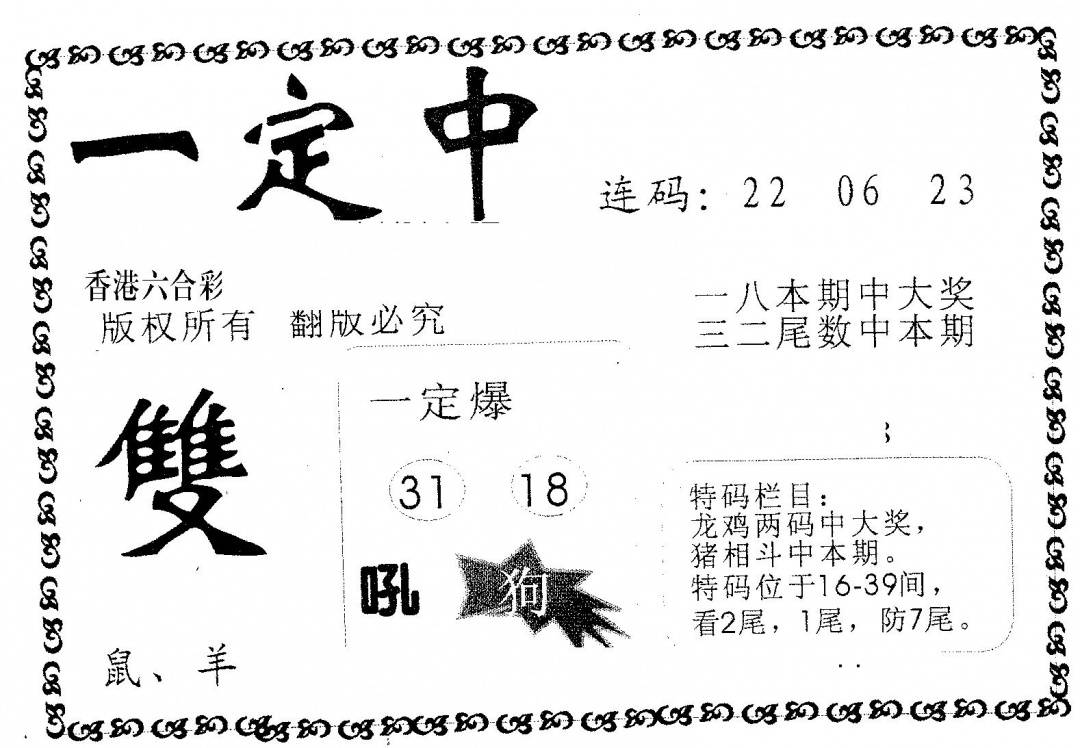 一定中
连码：22 06 23
香港六合彩
版权所有 翻版必究
一八本期中大奖
三二尾数中本期
雙
鼠、羊
一定爆
31 18
吼 狗
特码栏目：
龙鸡两码中大奖，
猪相斗中本期。
特码位于16-39间，
看2尾，1尾，防7尾。